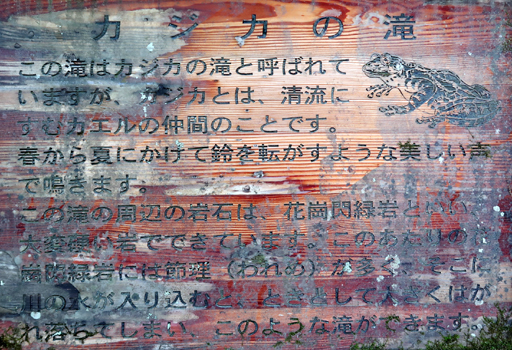 カジカの滝
この滝はカジカの滝と呼ばれて
いますが、カジカとは、清流に
すむカエルの仲間のことです。
春から夏にかけて鈴を転がすような美しい声
で鳴きます。
この滝の周辺の岩石は、花崗閃緑岩といい、
大変硬い岩でできています。このあたりの
閃緑岩には節理（われめ）が多く、そこに
川の水が入り込むと、ときとして大きくはが
れ落ちてしまい、このような滝ができます。